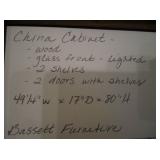 China Cabinet -
- wood
- glass front - lighted
- 2 shelves
- 2 doors with shelves
49 1/4" W x 17" D x 80" H
Bassett Furniture